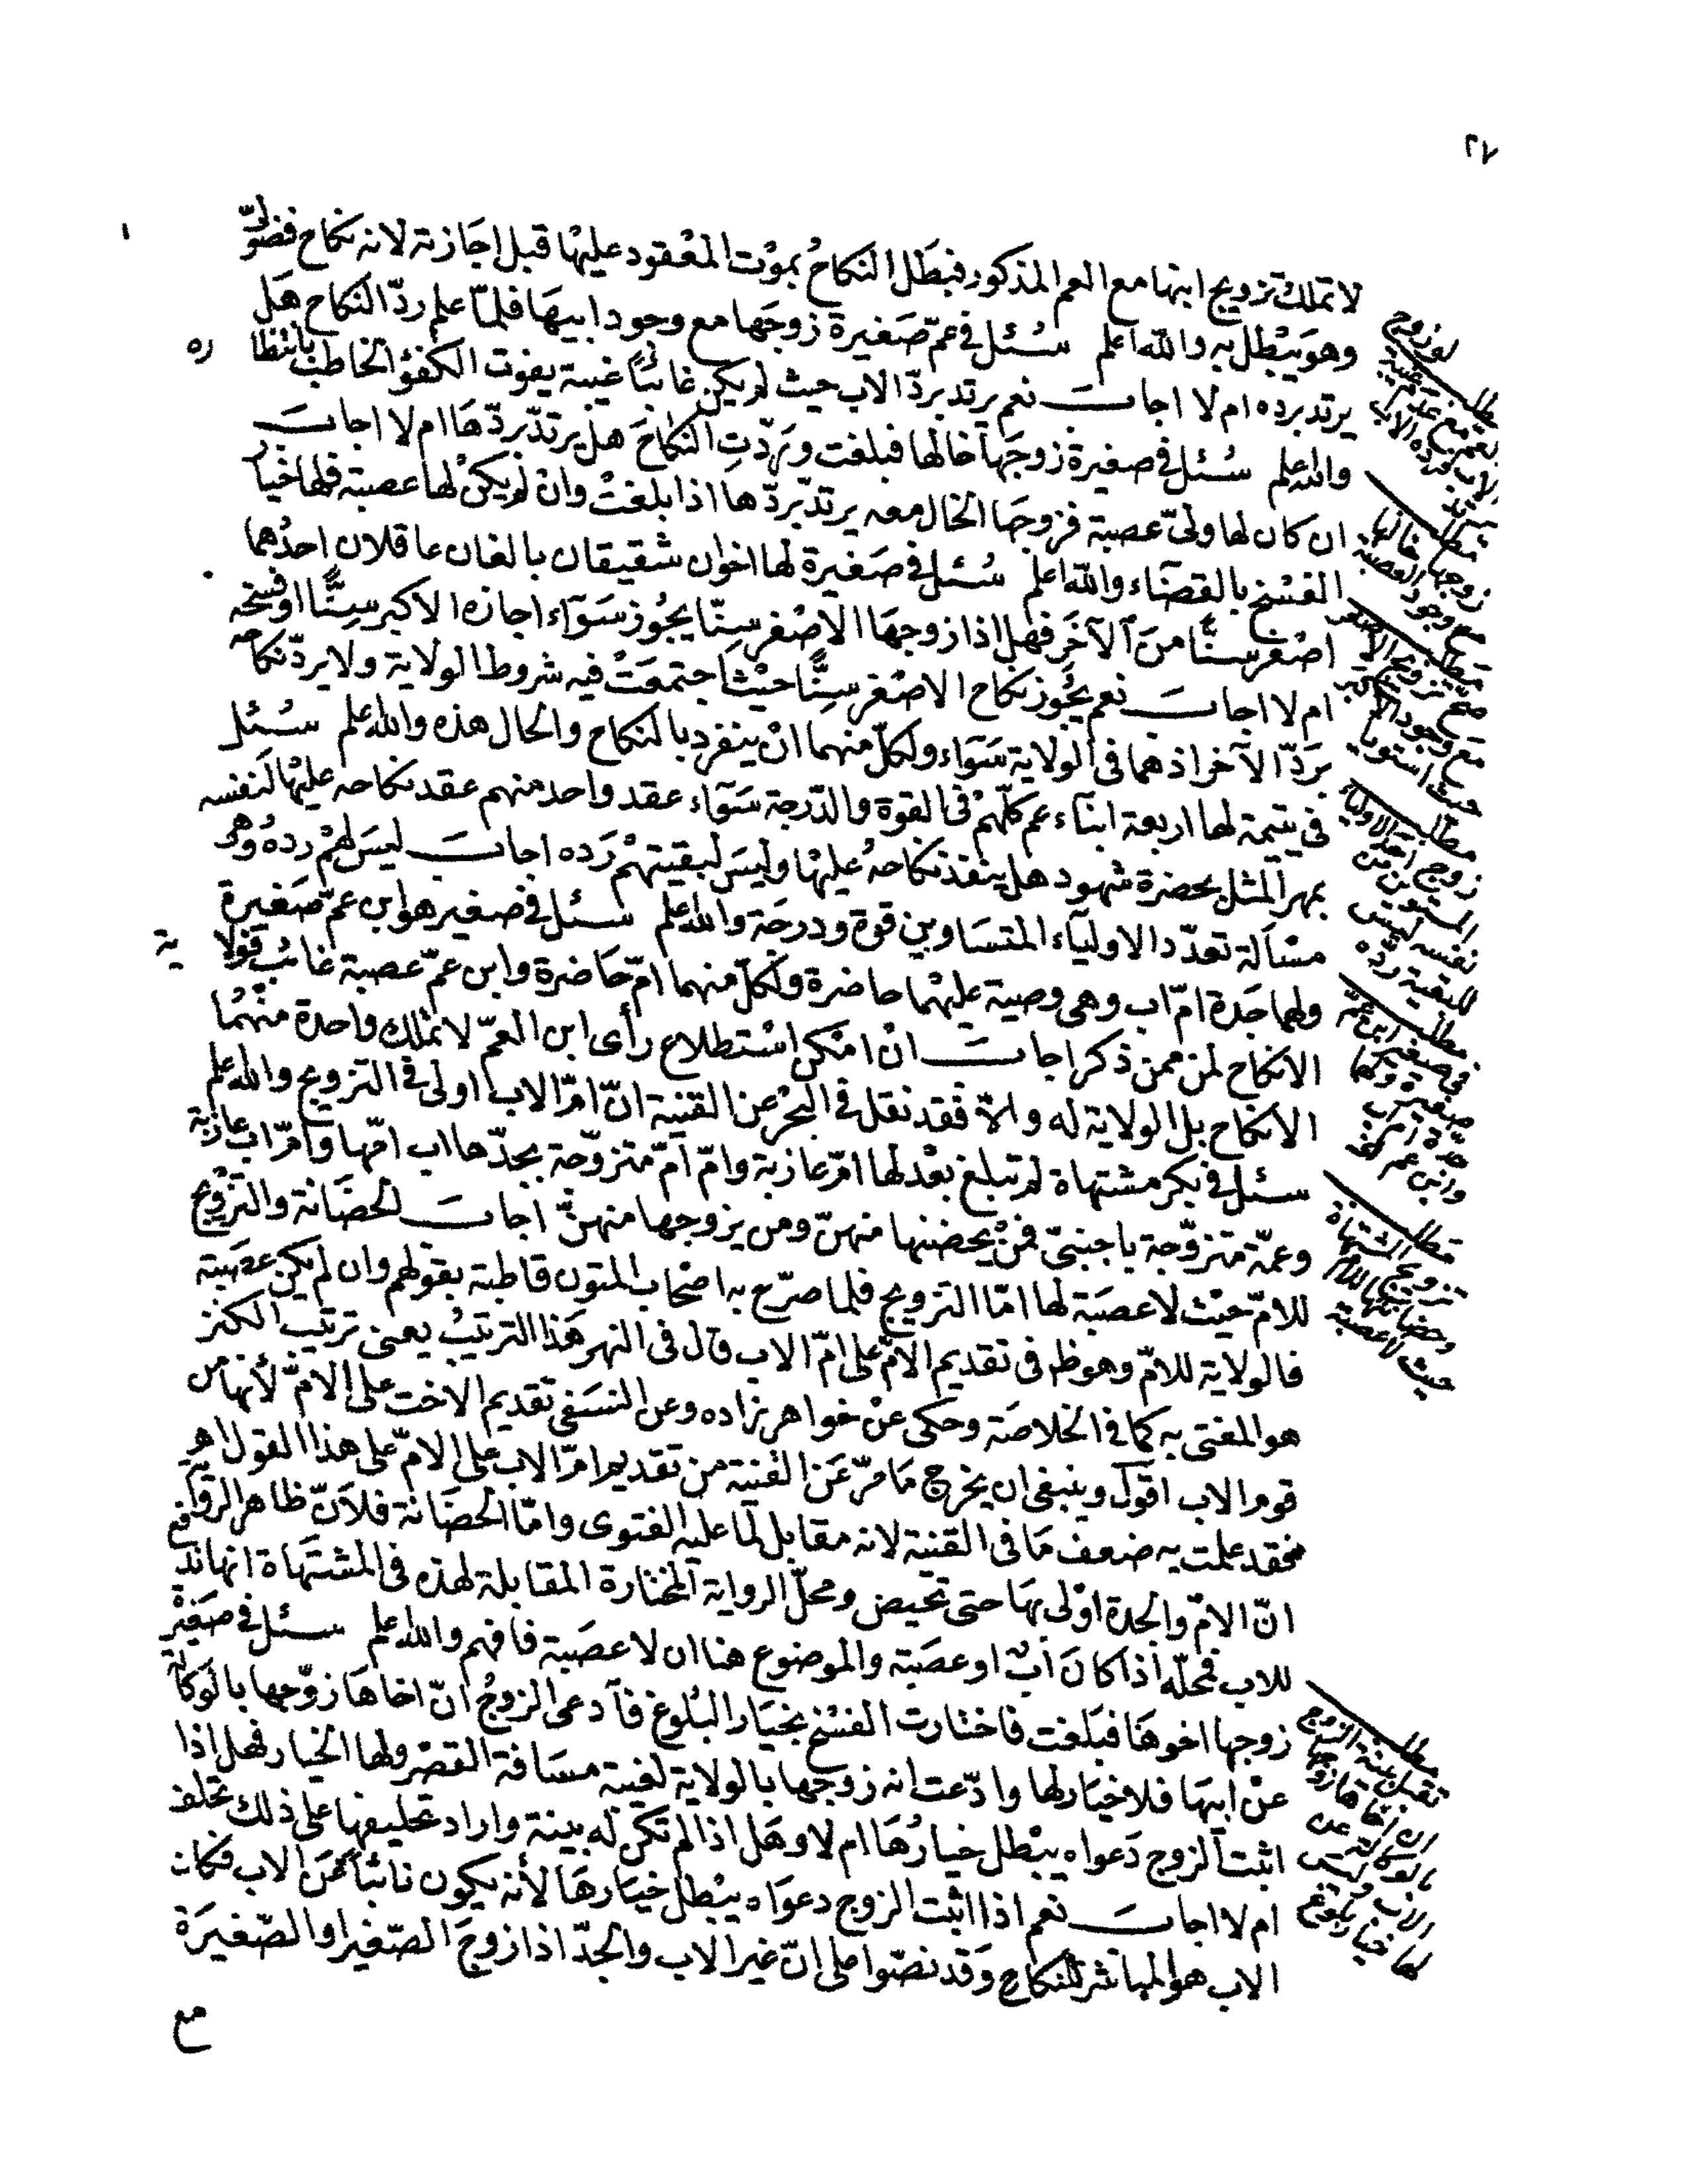 ٢٧
لا تملك تزويج ابنها مع العم المذكور فبطل النكاحُ بموْت المعْقود عليهْا قبل اجَازته لانه نكاح فضولىّ
وهوَ يبْطل به والله اعلم سُئل فى عمّ صَغيرة زوجَها مع وجود ابيهَا فلمّا علم ردّ النكاح هَل
يرتد برده ام لا اجابَ نعم يرتد بردّ الاب حيث لم يكن غائبًا غيبة يفوت الكفؤ الخاطب بانتظاره
والله اعلم سُئل فى صغيرة زوجَها خالها فبلغت وَردّتِ النكاحَ هل يرتدّ بردّهَا ام لا اجابَ
ان كان لها ولىّ عصبة فزوجها الخال معه يرتدّ بردّها اذا بلغتْ وان لم يكنْ لها عصبة فلها خيار
الفسْخ بالقضَاء والله اعلم سُئل فى صَغيرة لها اخوان شقيقان بالغان عاقلان احدُهما
اصْغر سِنًّا منَ الآخَر فهل اذا زوجهَا الاصْغر سِنّا يجُوز سَوَآء اجازه الاكبر سِنًّا او فسخه
ام لا اجابَ نعم يجُوز نكاح الاصْغر سِنًّا حيْث اجتمعَتْ فيه شروط الولاية ولا يردّ نكاحه
بَردّ الآخر اذ هما فى الولاية سَوَاء ولكلّ منهما انْ ينفرد بالنكاح والحال هذه والله اعلم سُئل
فى يتيمة لها اربعة ابنَآء عم كلّهمْ فى القوة والدّرجة سَوَآء عقد واحد منهم عقد نكاحه عليهْا لنفسه
بمهر المثل بحضرة شهود هل ينفذ نكاحهُ عليهْا وليسَ لبقيتهمْ رَده اجابَ ليسَ لهمْ ردهُ وَهو
مسْألة تعدّد الاوليَاء المتسَاوين قوة ودرجَة والله اعلم سئل فى صغير هو ابن عمّ صَغيرة
ولهما جَدة امّ اب وهى وصية عليْهما حاضرة ولكلّ منهما امّ حَاضرة وابن عمّ عصبة غائب فولاية
الانكاح لمن ممن ذكر اجابَ انْ امْكن اسْتطلاع رأى ابن العمّ لا تملك واحدة منْهُما
الانكاح بل الولاية له والّا فقد نقل فى البحْر عن القنية انّ امّ الاب اولى فى التزويج والله اعلم
سئل فى بكر مشتهاة لم تبلغ بعْد لها امّ عازبة وامّ امّ متزوّجة بجدّها اب امّها وامّ اب عازبة
وعمّة متزوّجة باجنبىّ فمنْ يحضنها منهنّ ومن يزوجها منهنّ اجابَ الحضَانة والتزْويج
للامّ حيْث لا عصَبة لها امّا التزويج فلما صرّح به اصْحاب المتون قاطبة بقولهم وان لم يكن عصَبة
فالولاية للامّ وهو ظ فى تقديم الامّ على امّ الاب قال فى النهر هَذا الترتيبُ يعنى ترتيب الكنز
هو المفتى به كما فى الخلاصَة وحكى عنْ خواهر زاده وعن النسَفى تقديم الاخت على الامّ لأنها من
قوم الاب اقول وينبغى ان يخرج مَا مرّ عَن القنية من تقديم امّ الاب على الامّ على هذا القول اهـ
فقد علمت به ضعف مَا فى القنية لانه مقابل لمَا عليه الفتوى وامّا الحضَانة فلاَنّ ظاهر الرواية
انّ الامّ والجدة اوْلى بهَا حتى تحيض ومحلّ الرواية المختارة المقابلة لهذه فى المشتَهاة انها تدفع
للاب فمحلّه اذا كانَ أبٌ او عصَبة والموضوع هنا ان لا عصَبة فافهم والله اعلم سئل فى صَغيرْة
زوجها اخوهَا فبَلغت فاختارت الفسْخ بخيَار البُلوغ فآدعى الزوجُ انّ اخاهَا زوّجها بالوكالة
عنْ ابيهَا فلا خيَار لها وادّعت انه زوجها بالولاية لغيبة مسَافة القصْر ولها الخيار فهل اذا
اثبت الزوج دَعواه يبْطل خيارُهَا ام لا وهَل اذا لم تكن له بينة واراد تحليفها على ذلك تحلف
ام لا اجابَ نعم اذا اثبت الزوج دعوَاه يبْطل خيَارهَا لأنه يكون نائبًا عَن الاب فكان
الاب هو المباشر للنكاح وَقد نصّوا على انّ غير الاب والجدّ اذا زوجَ الصّغير او الصّغيرَة
مع
مطلب
لو زوج
مطلب
زوجها خالها
مع وجود العصبة
مطلب
صح تزويج الاصغر
مع وجود الاكبر
حيث استويا
مطلب
زوج احد الاولياء
المستوين من
نفسه ليس
للبقية ردّه
مطلب
فى صغير ابن عمّ
صغيرة ولهما
جدة ام اب
وابن عم
مطلب
تزويج المشتهاة
وحضانتها للام
حيث لا عصبة
مطلب
تقبل بينة الزوج
ان اخاها زوجها
بالوكالة عن
الاب وليس
لها خيار بلوغ